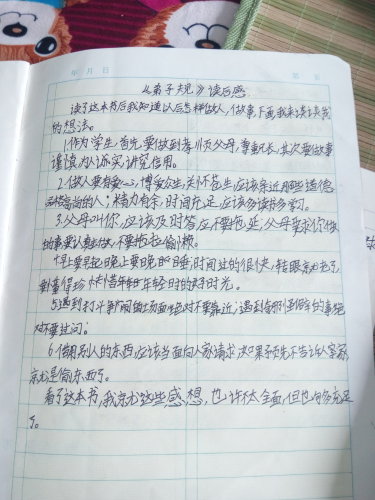 年 月 日
第 页
《弟子规》读后感
读了这本书后我知道以后怎样做人,做事,下面我来谈谈我
的想法。
1.作为学生,首先要做到孝顺父母,尊重兄长,其次要做事
谨慎,为人诚实,讲究信用。
2.做人要有爱心,博爱众生,关怀苍生,应该亲近那些道德
品格高尚的人;精力有余,时间充足,应该多读书多学习。
3.父母叫你,应该及时答应不要拖延,父母要求你做
的事要认真去做,不要拖拉偷懒。
4.早上要早起晚上要晚睡,时间过的很快,转眼
要懂得珍惜年轻时的时光。
5.遇到打斗争闹的场面绝对不要靠近;遇到的事绝
对不要过问;
6.借用别人的东西,应该当面向人家请求,如果事先不告诉人家
就是偷东西了。
看了这本书,我就有这些感想,也许不太全面,但也何多充足
了。